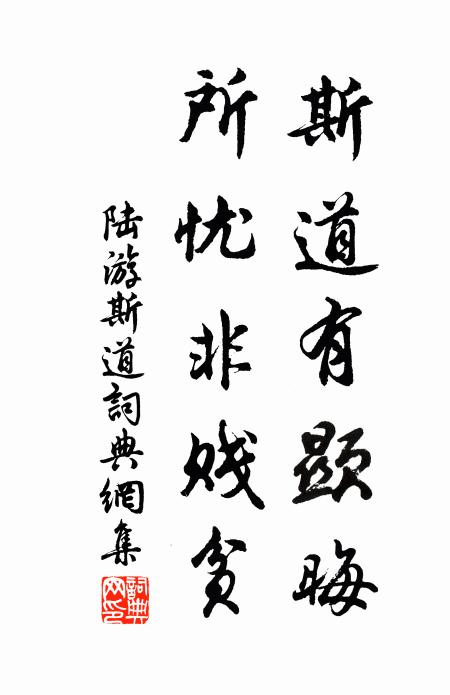 斯道有顯晦
所忧非贱贫
陆游斯道詞典網集
詞典网印